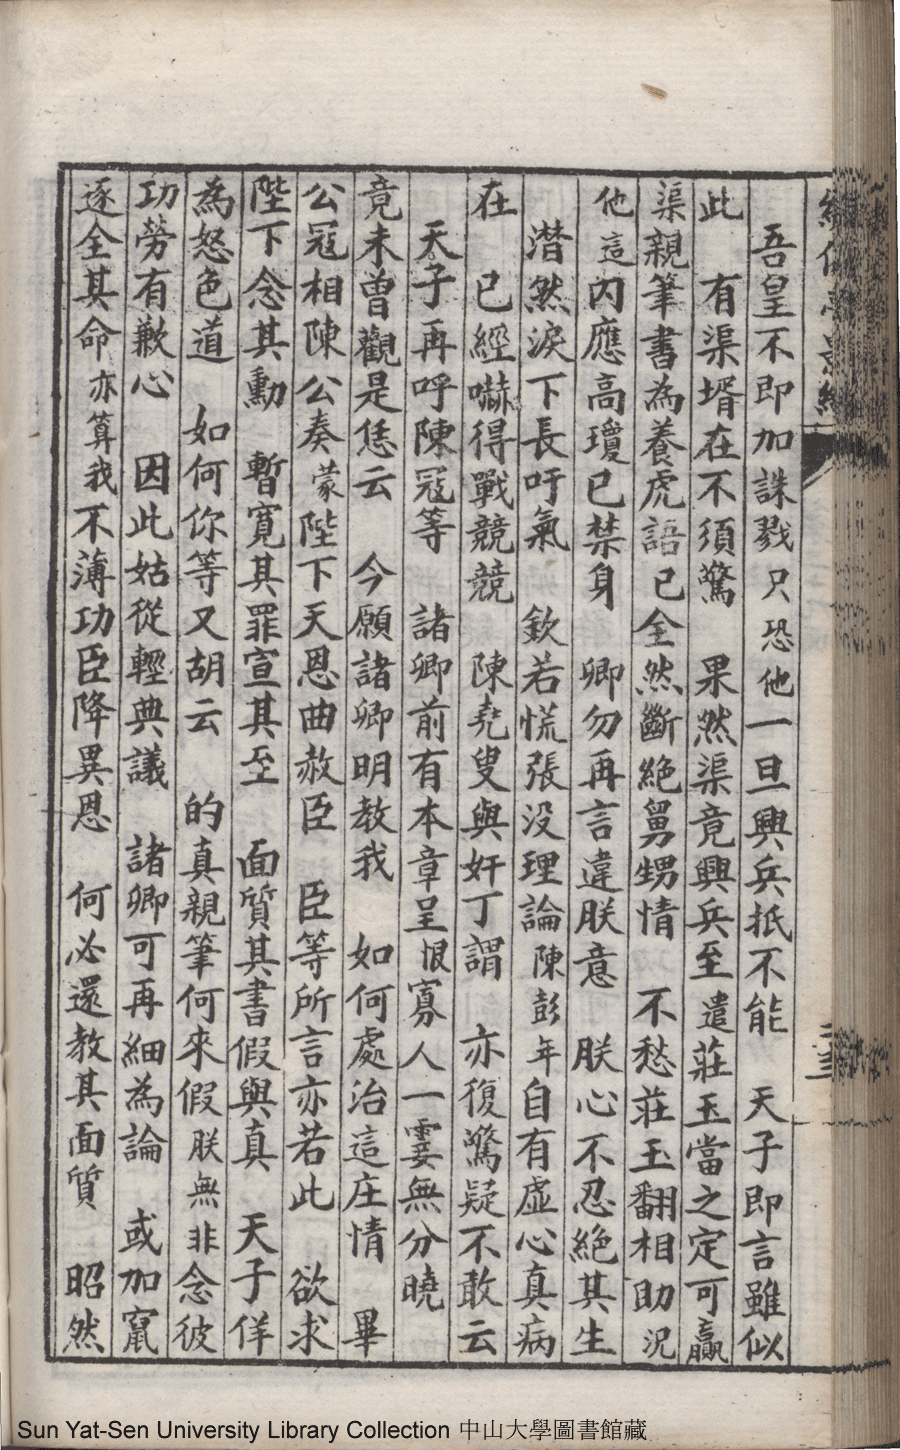 吾皇不即加誅戮 只恐他一旦興兵抵不能 天子即言雖似
此 有渠壻在不須驚 果然渠竟興兵至 遣莊玉當之定可贏
渠親筆書為養虎語 已全然斷絕舅甥情 不愁莊玉翻相助 況
他這內應高瓊已禁身 卿勿再言違朕意 朕心不忍絕其生
潸然淚下長吁氣 欽若慌張没理論 陳彭年自有虛心真病
在 已經嚇得戰競競 陳堯叟與奸丁謂 亦復驚疑不敢云
天子再呼陳寇等 諸卿前有本章呈 恨寡人一霎無分曉
竟未曾觀是恁云 今願諸卿明教我 如何處治這庄情 畢
公寇相陳公奏 蒙陛下天恩曲赦臣 臣等所言亦若此 欲求
陛下念其勳 暫寬其罪宣其至 面質其書假與真 天子佯
為怒色道 如何你等又胡云 的真親筆何來假 朕無非念彼
功勞有歉心 因此姑從輕典議 諸卿可再細為論 或加竄
逐全其命 亦算我不薄功臣降異恩 何必還教其面質 昭然
Sun Yat-Sen University Library Collection 中山大學圖書館藏